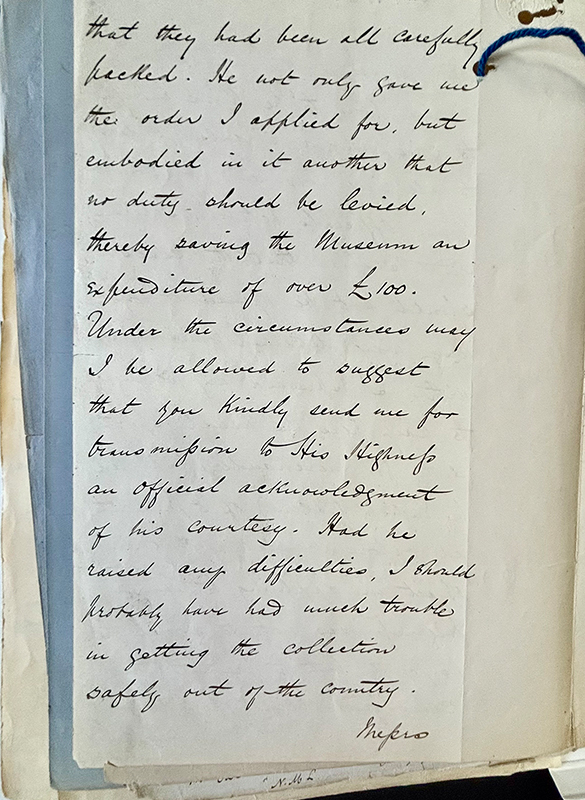 that they had been all carefully
packed. He not only gave me
the order I applied for, but
embodied in it another that
no duty should be levied,
thereby saving the Museum an
expenditure of over £100.
Under the circumstances may
I be allowed to suggest
that you kindly send me for
transmission to His Highness
an official acknowledgment
of his courtesy. Had he
raised any difficulties, I should
probably have had much trouble
in getting the collection
safely out of the country.
Messrs